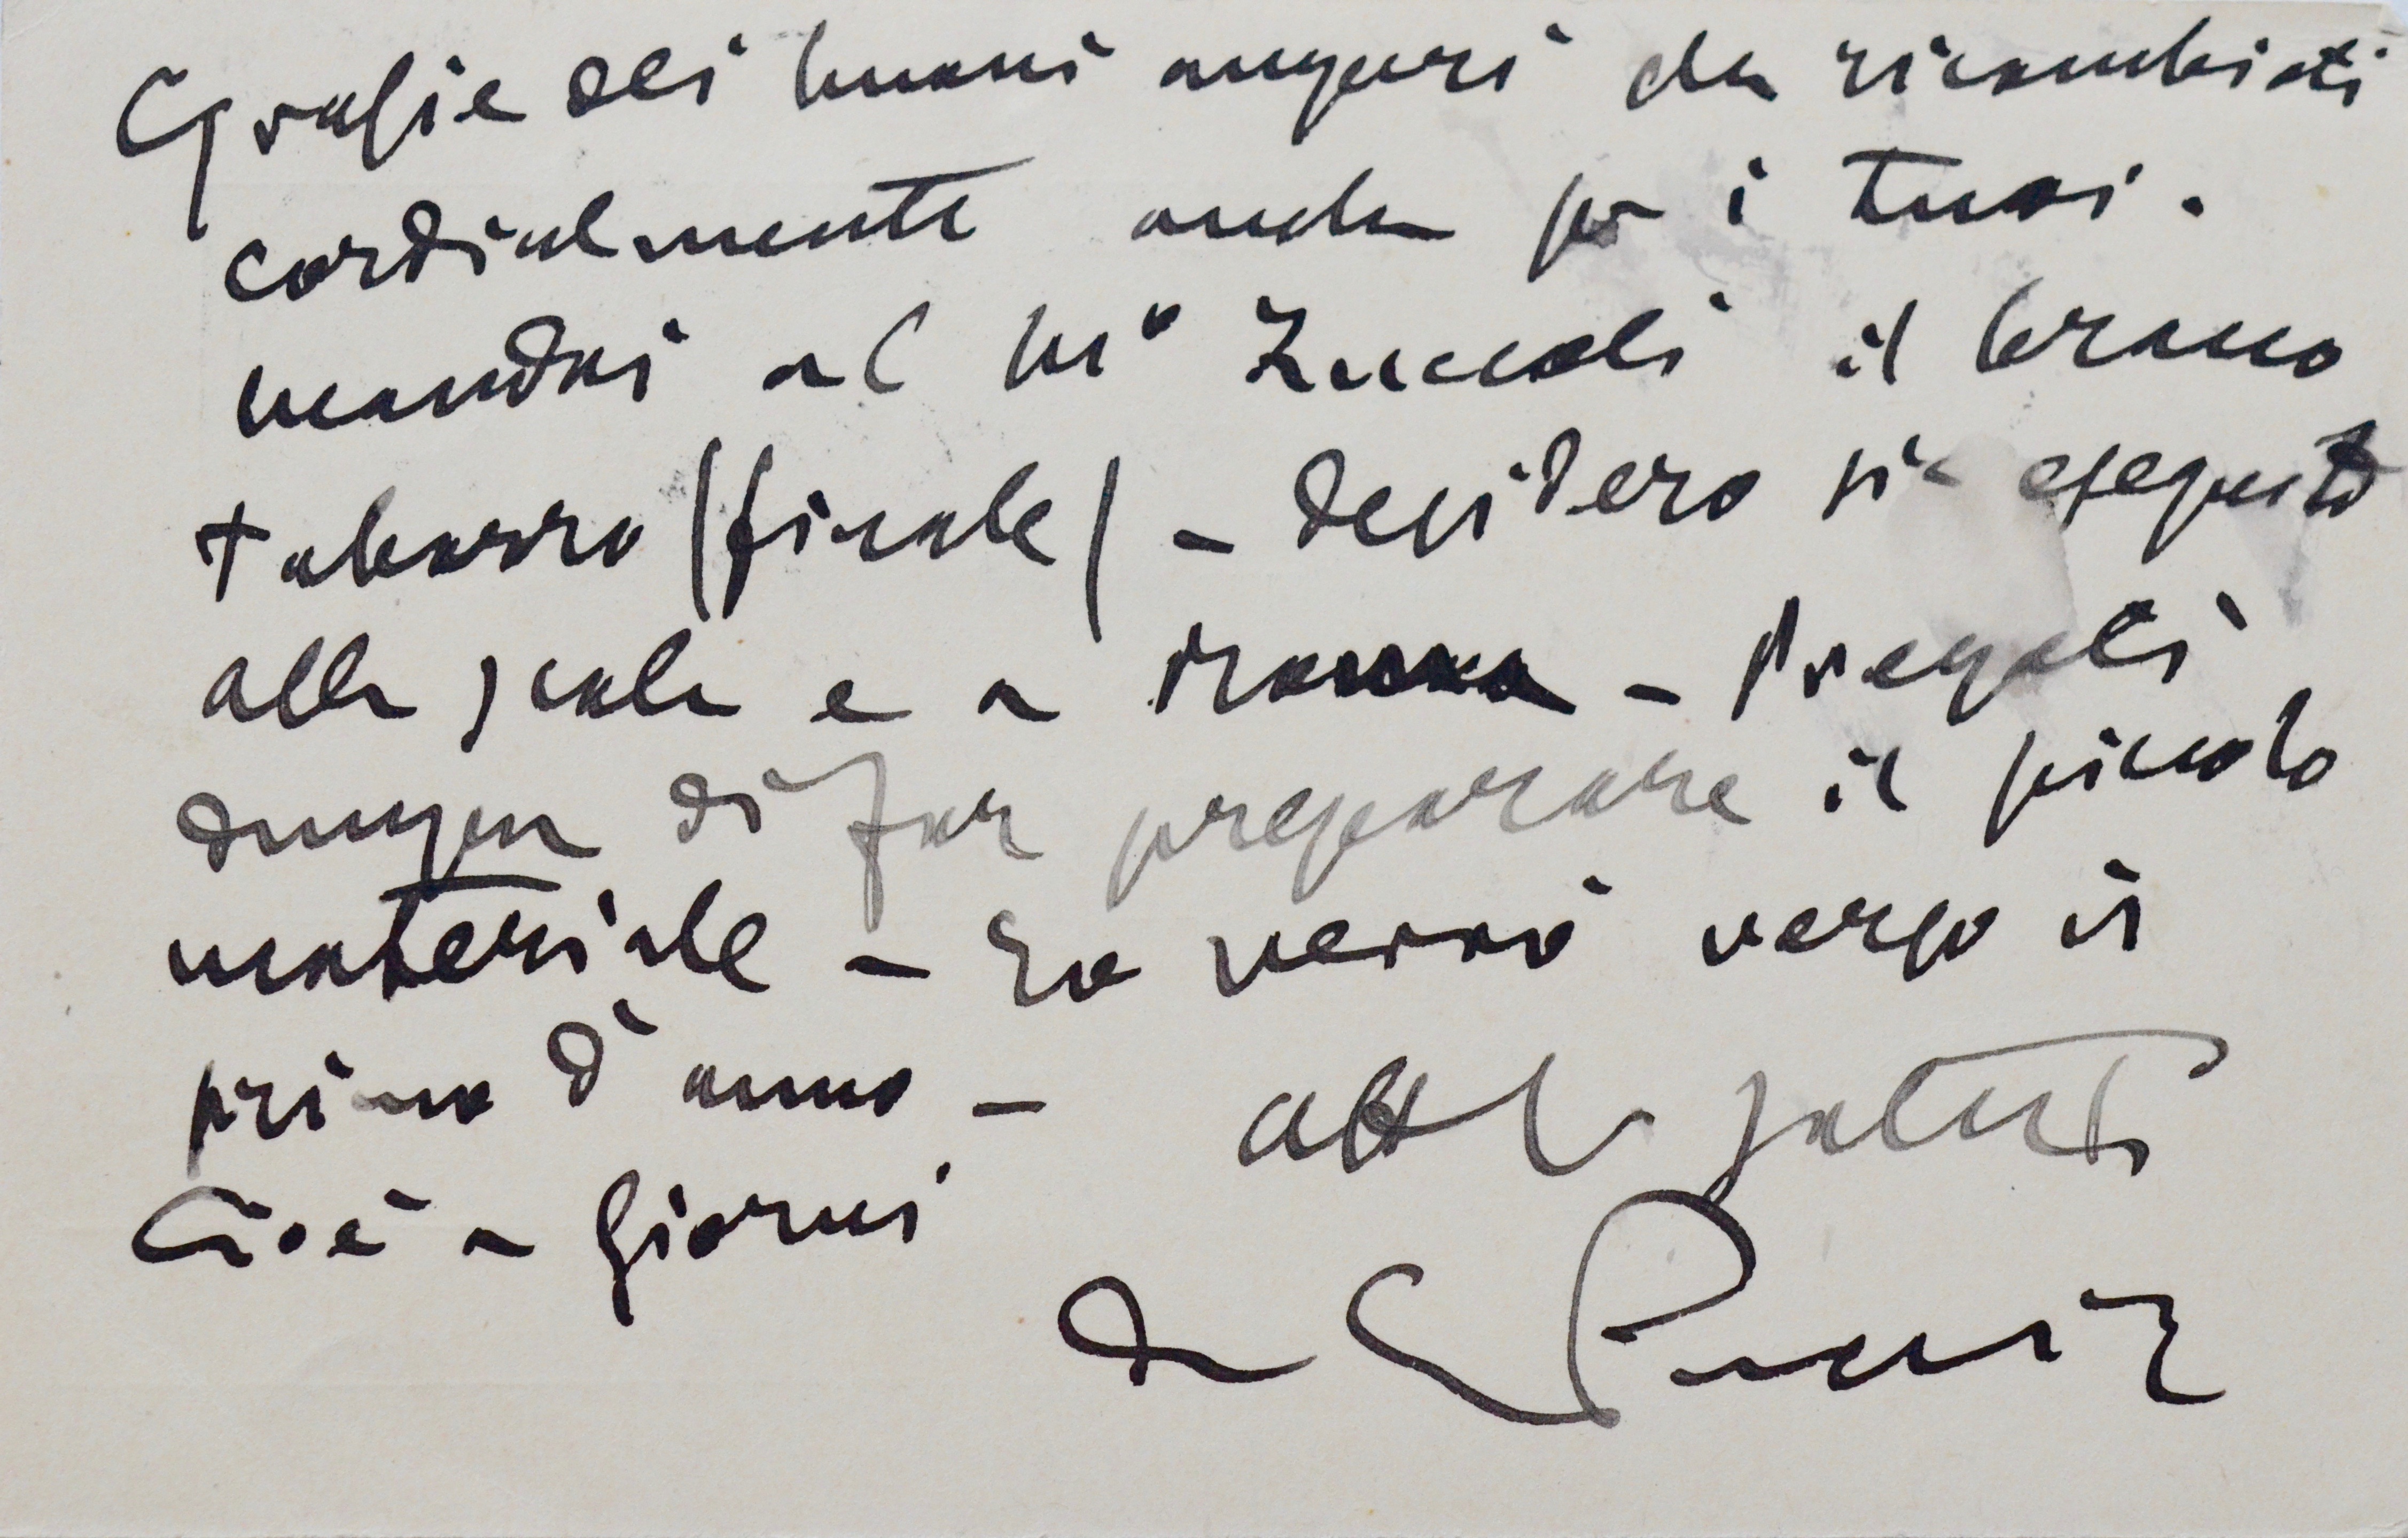 Grazie dei buoni auguri che ricambioti
cordialmente anche per i tuoi.
mandai al Mo Zuccoli il brano
tabarro (finale) - desidero sia eseguito
alla scala e a Roma - Pregoti
dunque di far preparare il piccolo
materiale - Io verrò verso il
primo d'anno - aff saluti
Cioè a giorni
da GPucci